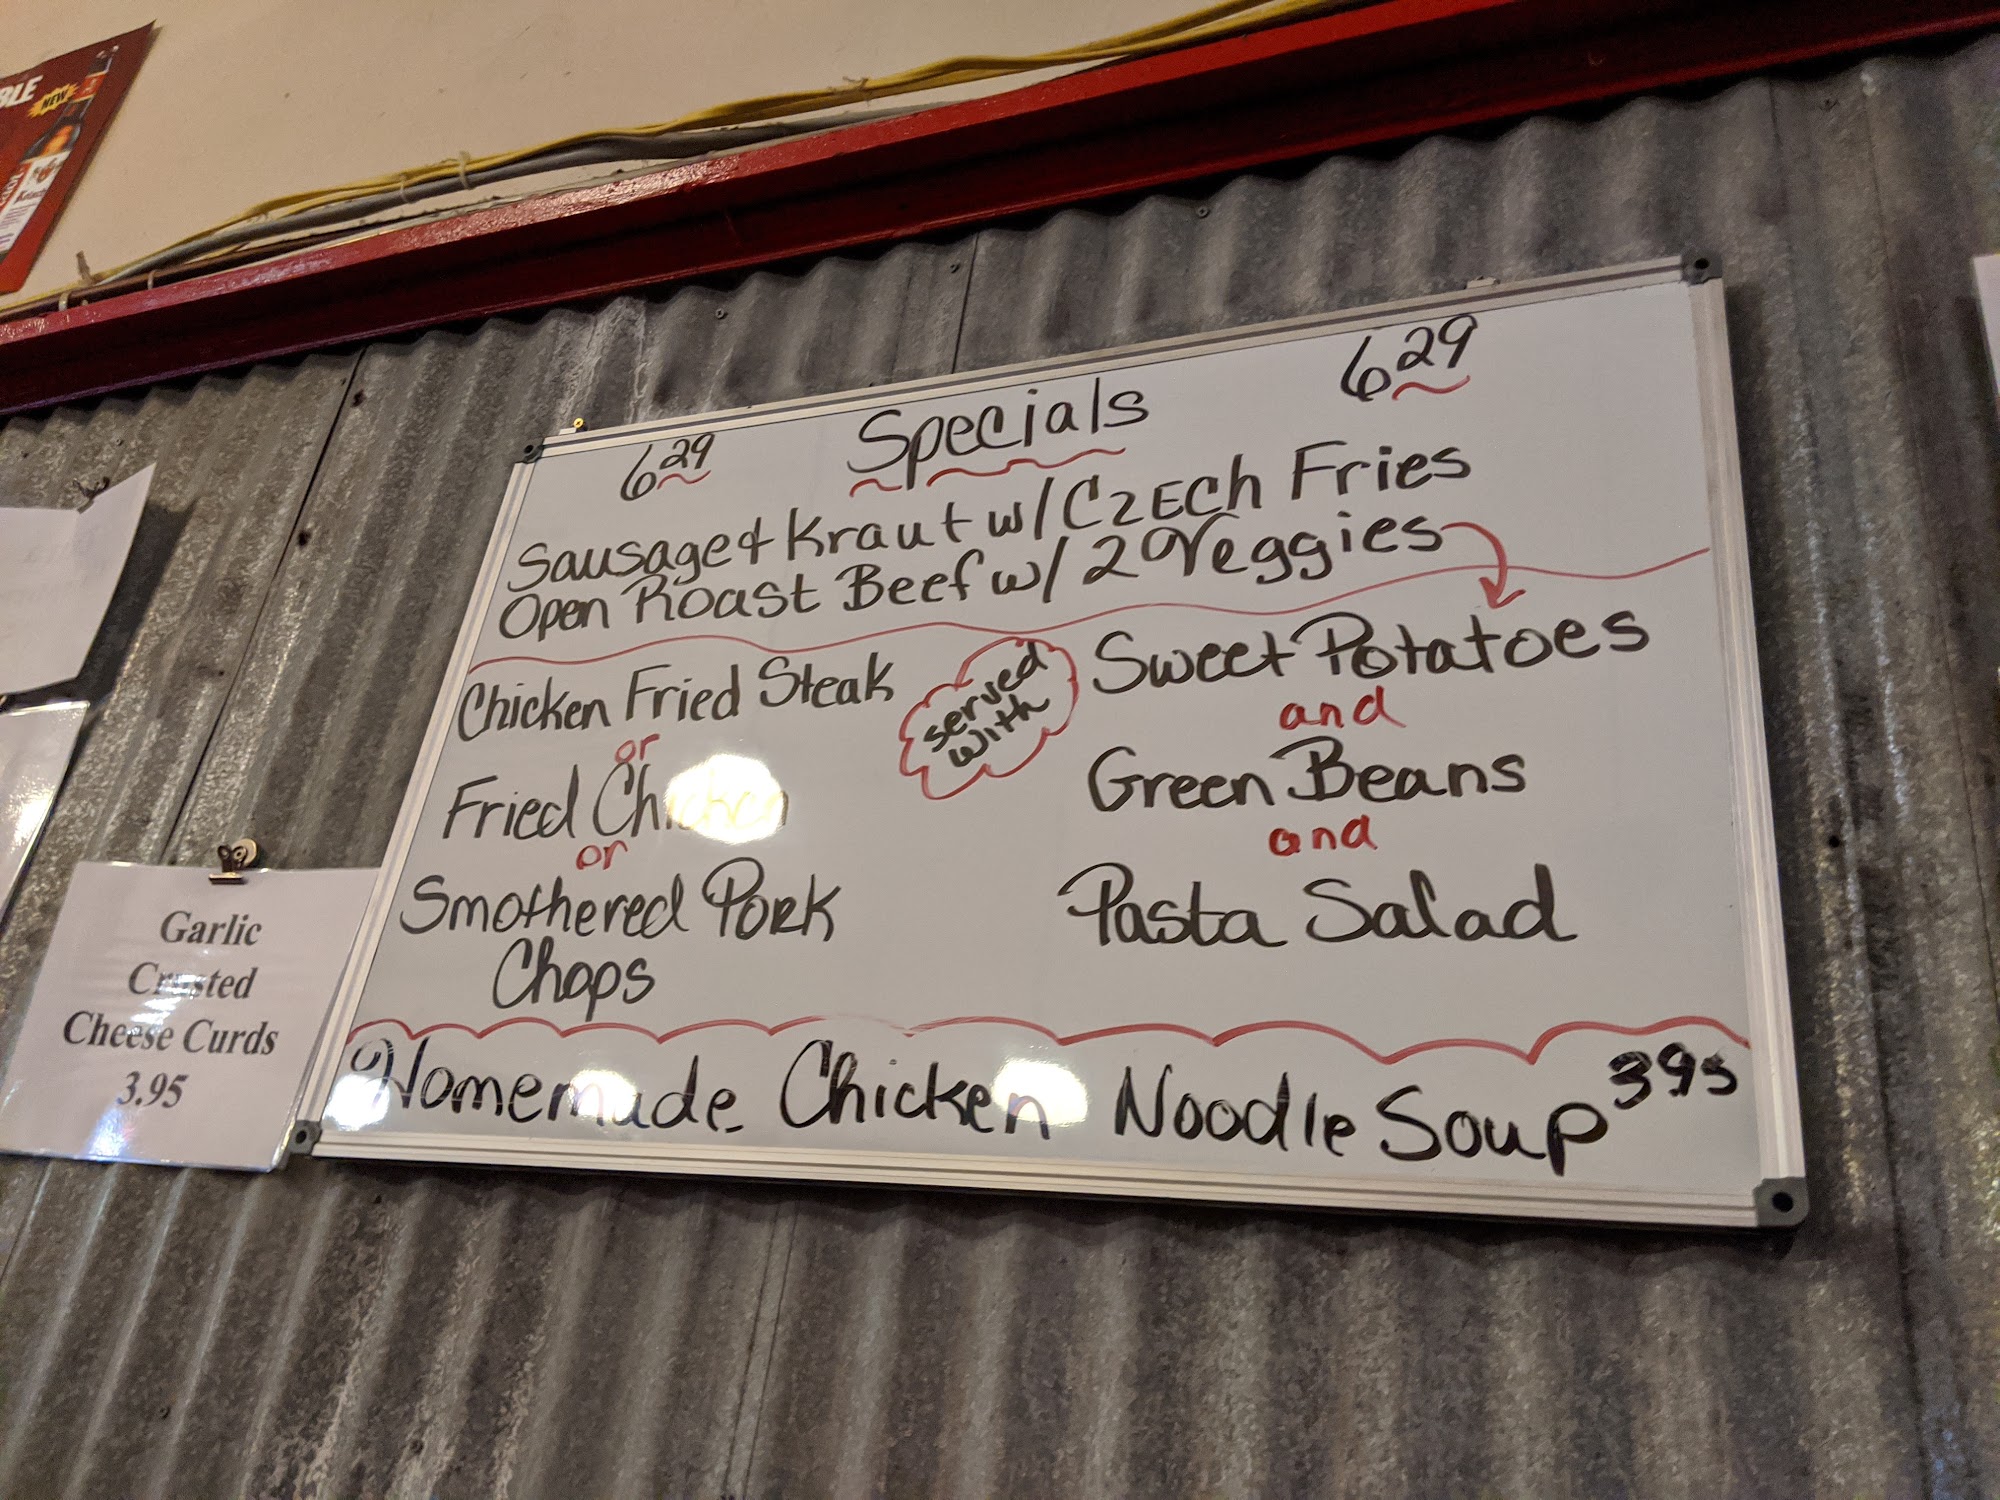 BLE
NEW
6 29
Specials
6 29
Sausage & Kraut w/ CZECh Fries
Open Roast Beef w/ 2 Veggies
Chicken Fried Steak
or
Fried Chicken
or
Smothered Pork
Chops
served
with
Sweet Potatoes
and
Green Beans
and
Pasta Salad
Homemade Chicken Noodle Soup 3.95
Garlic
Crusted
Cheese Curds
3.95